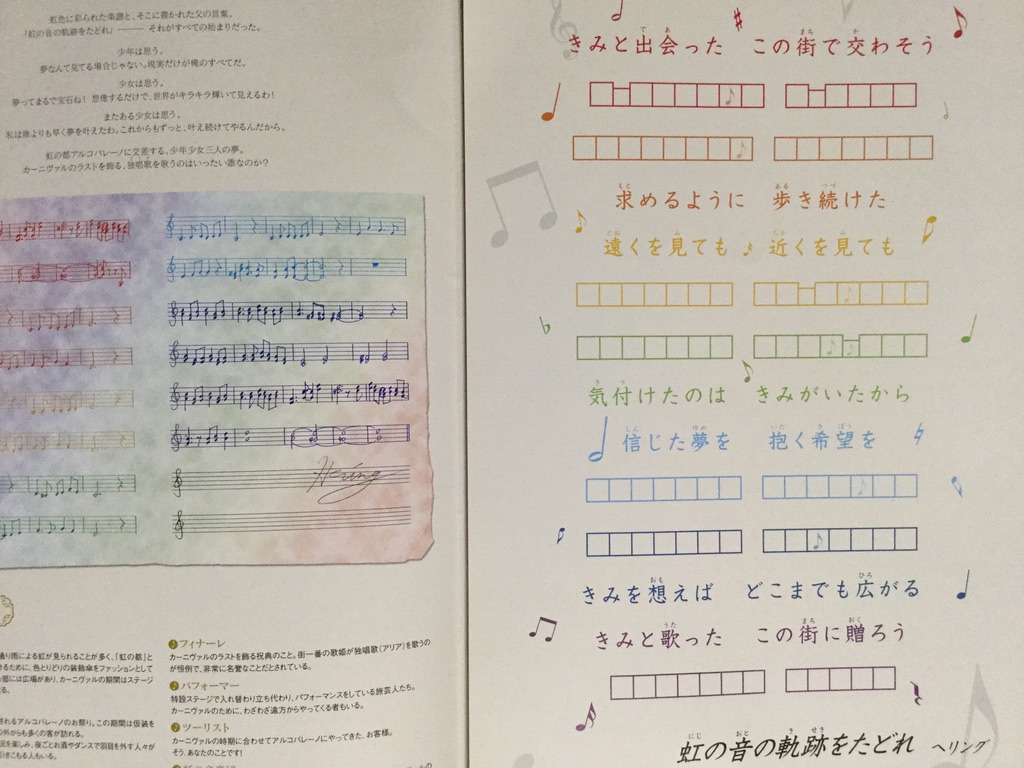 虹色に彩られた楽譜と、そこに書かれた父の言葉。
「虹の音の軌跡をたどれ」―― それがすべての始まりだった。
少年は思う。
夢なんて見てる場合じゃない。現実だけが俺のすべてだ。
少女は思う。
夢ってまるで宝石ね！ 想像するだけで、世界がキラキラ輝いて見えるわ！
またある少女は思う。
私は誰よりも早く夢を叶えたわ。これからもずっと、叶え続けてやるんだから。
虹の都アルコバレーノに交差する、少年少女三人の夢。
カーニヴァルのラストを飾る、独唱歌を歌うのはいったい誰なのか？
Hering
通り雨による虹が見られることが多く、「虹の都」と
るために、色とりどりの装飾傘をファッションとして
部には広場があり、カーニヴァルの期間はステージ
る。
されるアルコバレーノのお祭り。この期間は仮装を
の外からも多くの客が訪れる。
を楽しみ、夜ごとお酒やダンスで羽目を外す人々が
引きこもる人もいる。
フィナーレ
カーニヴァルのラストを飾る祝典のこと。街一番の歌姫が独唱歌（アリア）を歌うの
が恒例で、非常に名誉なことだとされている。
パフォーマー
特設ステージで入れ替わり立ち代わり、パフォーマンスをしている旅芸人たち。
カーニヴァルのために、わざわざ遠方からやってくる者もいる。
ツーリスト
カーニヴァルの時期に合わせてアルコバレーノにやってきた、お客様。
そう、あなたのことです！
きみと出会った この街で交わそう
求めるように 歩き続けた
遠くを見ても 近くを見ても
気付けたのは きみがいたから
信じた夢を 抱く希望を
きみを想えば どこまでも広がる
きみと歌った この街に贈ろう
虹の音の軌跡をたどれ ヘリング